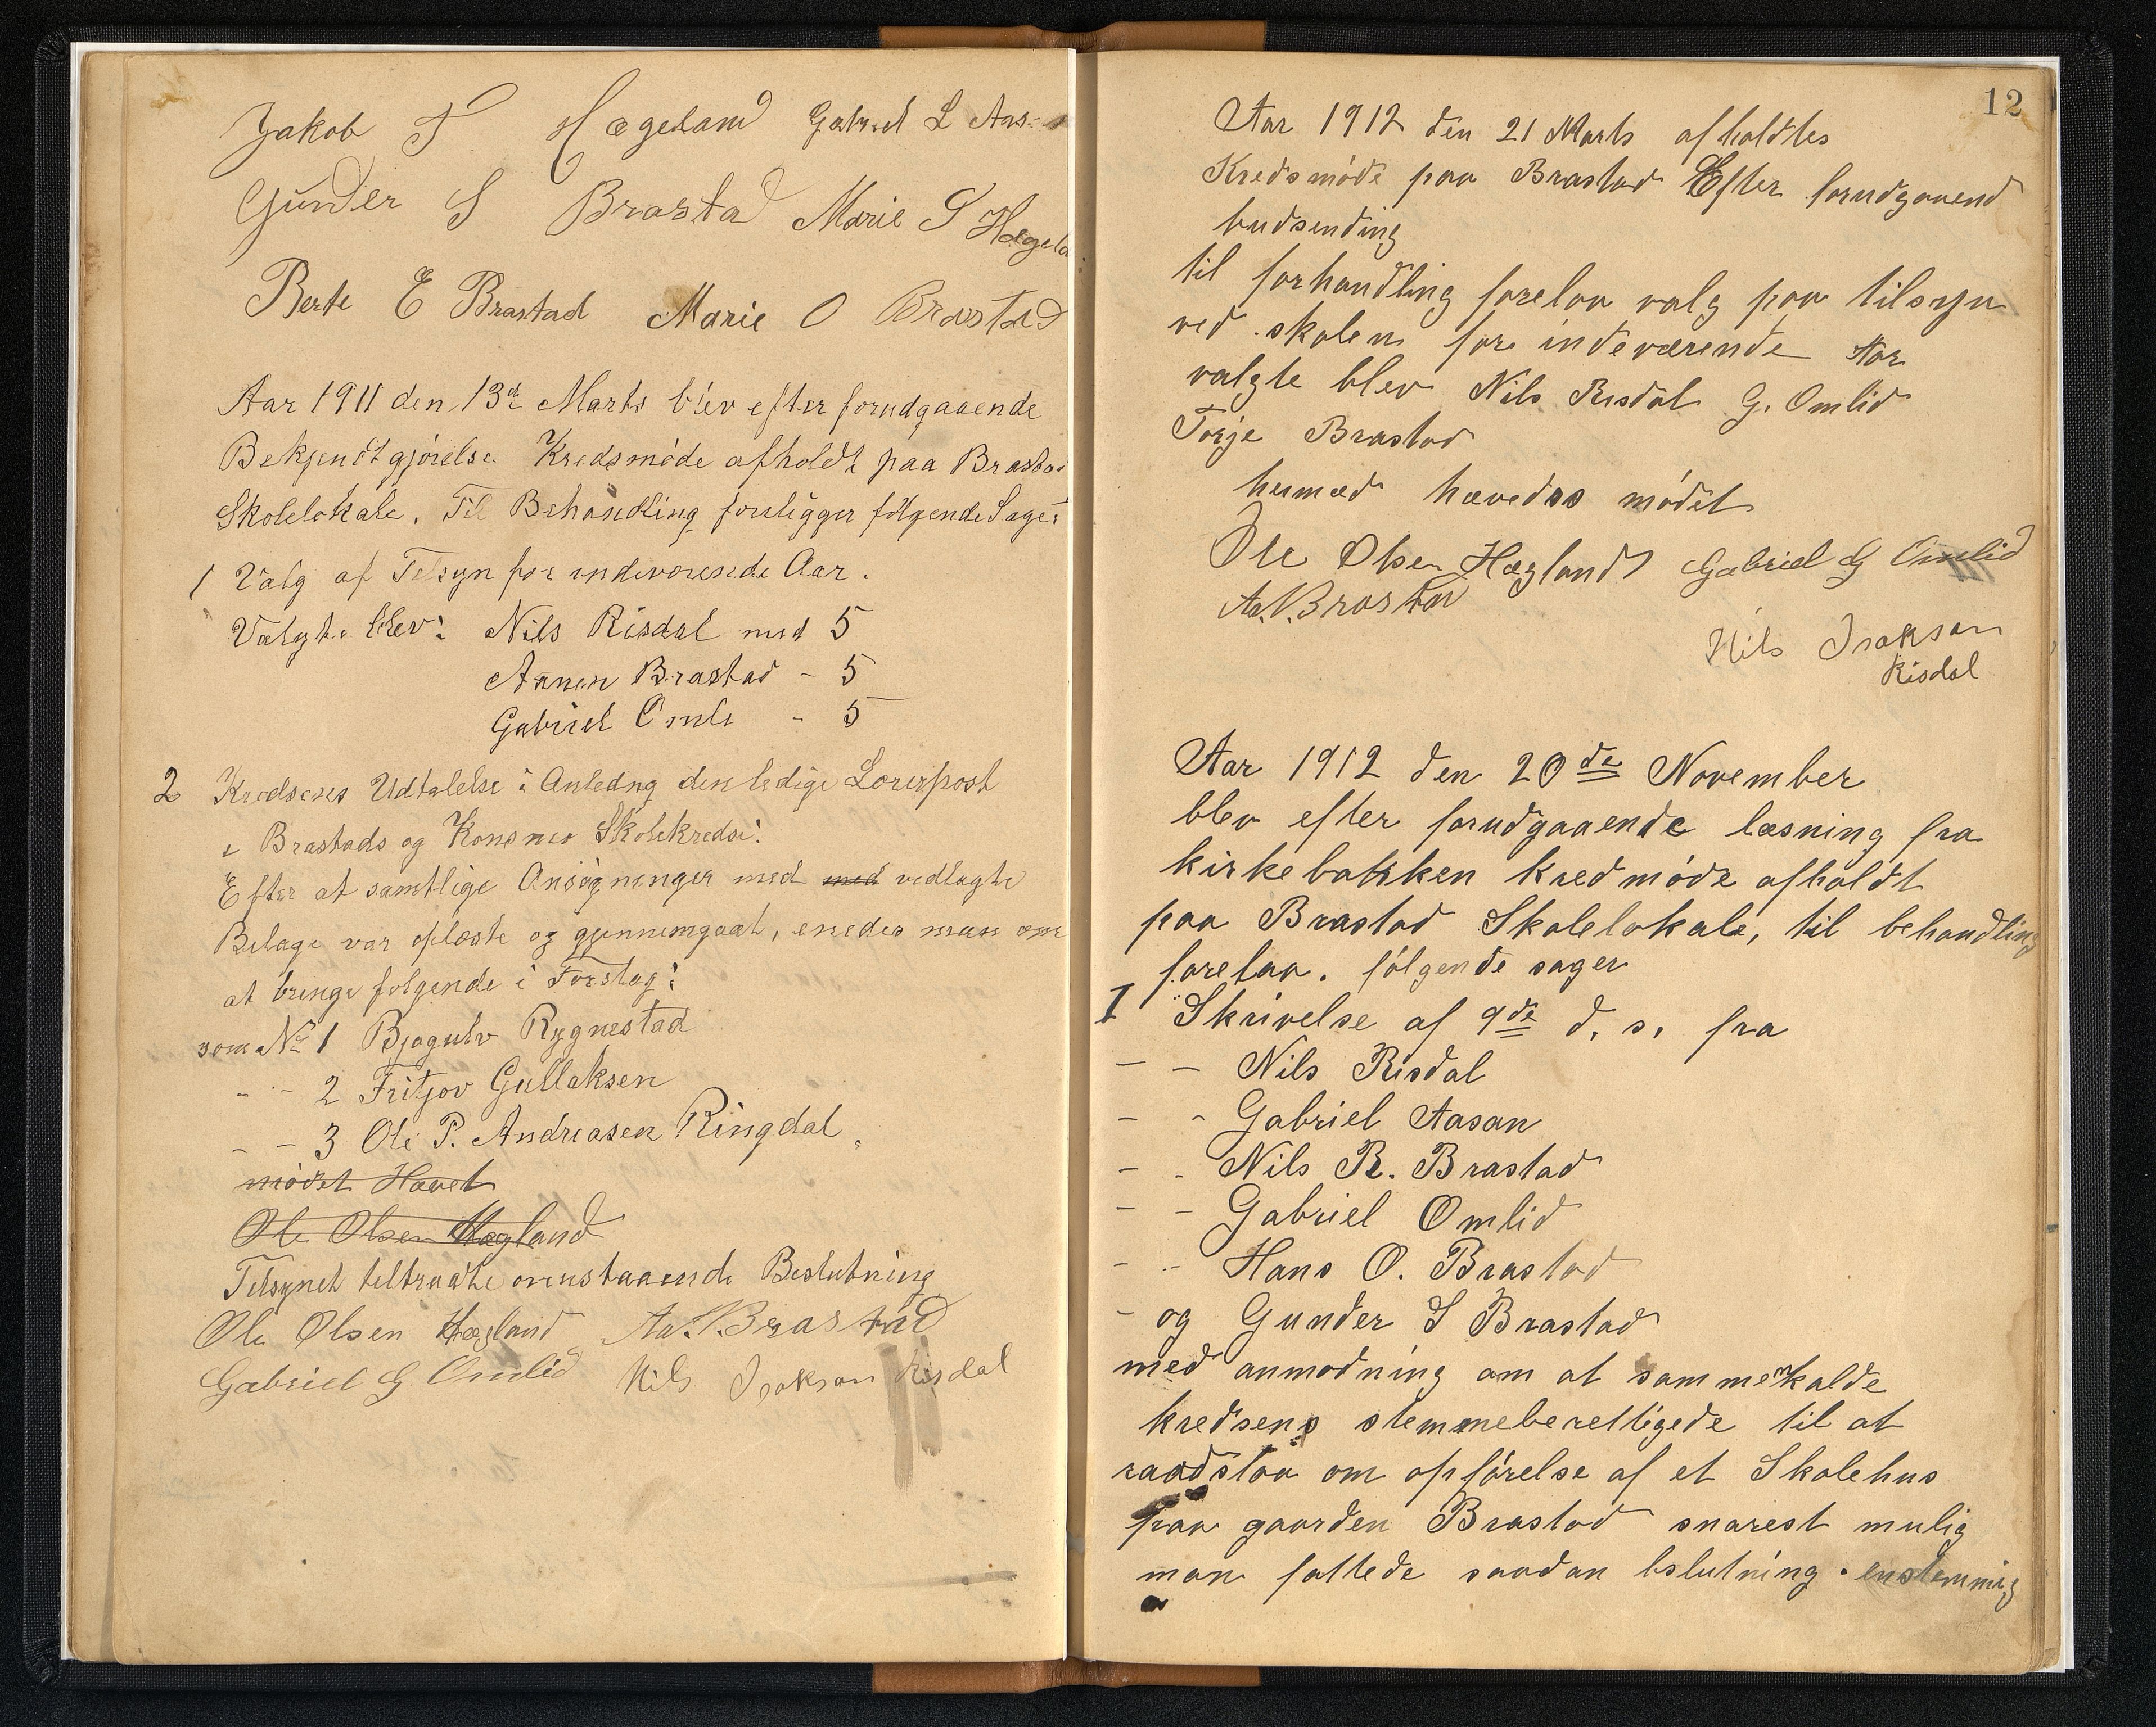 Jakob T Hægeland Gabriel L Aas
Gunder S Brastad Marie S Hægela
Berte E Brastad Marie O Brastad
Aar 1911 den 13de Marts blev efter forudgaaende
Bekjendtgjørelse Kredsmøde afholdt paa Brastad
Skolelokale. Til Behandling foreligger følgende Sager
1 Valg af Tilsyn for indeværende Aar.
Valgte blev: Nils Risdal med 5
Aanen Brastad - 5
Gabriel Omli - 5
2 Kredsenes Udtalelse i Anledng den ledige Lærerpost
i Brastads og Konsmo Skolekredse:
Efter at samtlige Ansøgninger med med vedlagte
Bilage var oplæste og gjennemgaat, enedes man om
at bringe følgende i Forslag:
som No 1 Bjøgulv Rygnestad
- - 2 Fritjov Gullaksen
- - 3 Ole P. Andreasen Ringdal.
mødet Hævet
Ole Olsen Hægland
Tilsynet tiltraadte ovenstaaende Beslutning
Ole Olsen Hægland Aa. S. Brastad
Gabriel G Omlid Nils Isakson Risdal
12
Aar 1912 den 21 Marts afholdtes
Kredsmøde paa Brastad Efter forudgaaend
budsending
til forhandling forelaa valg paa tilsyn
ved skolen for indeværende Aar
valgte blev Nils Risdal G. Omlid
Torje Brastad
hermed hævedes mødet
Ole Olsen Hægland Gabriel G Omlid
Aa. S. Brastad
Nils Isakson
Risdal
Aar 1912 den 20de November
blev efter forudgaaende læsning fra
kirkebakken kredmøde afholdt
paa Brastad Skolelokale, til behandling
forelaa. følgende sager
I Skrivelse af 9de d. s. fra
- - Nils Risdal
- - Gabriel Aasan
- - Nils R. Brastad
- - Gabriel Omlid
- - Hans O. Brastad
- og Gunder S Brastad
med anmodning om at sammenkalde
kredsens stemmeberettigede til at
raadslaa om opførelse af et Skolehus
paa gaarden Brastad snarest mulig
man fattede saadan bslutning. enstemmig